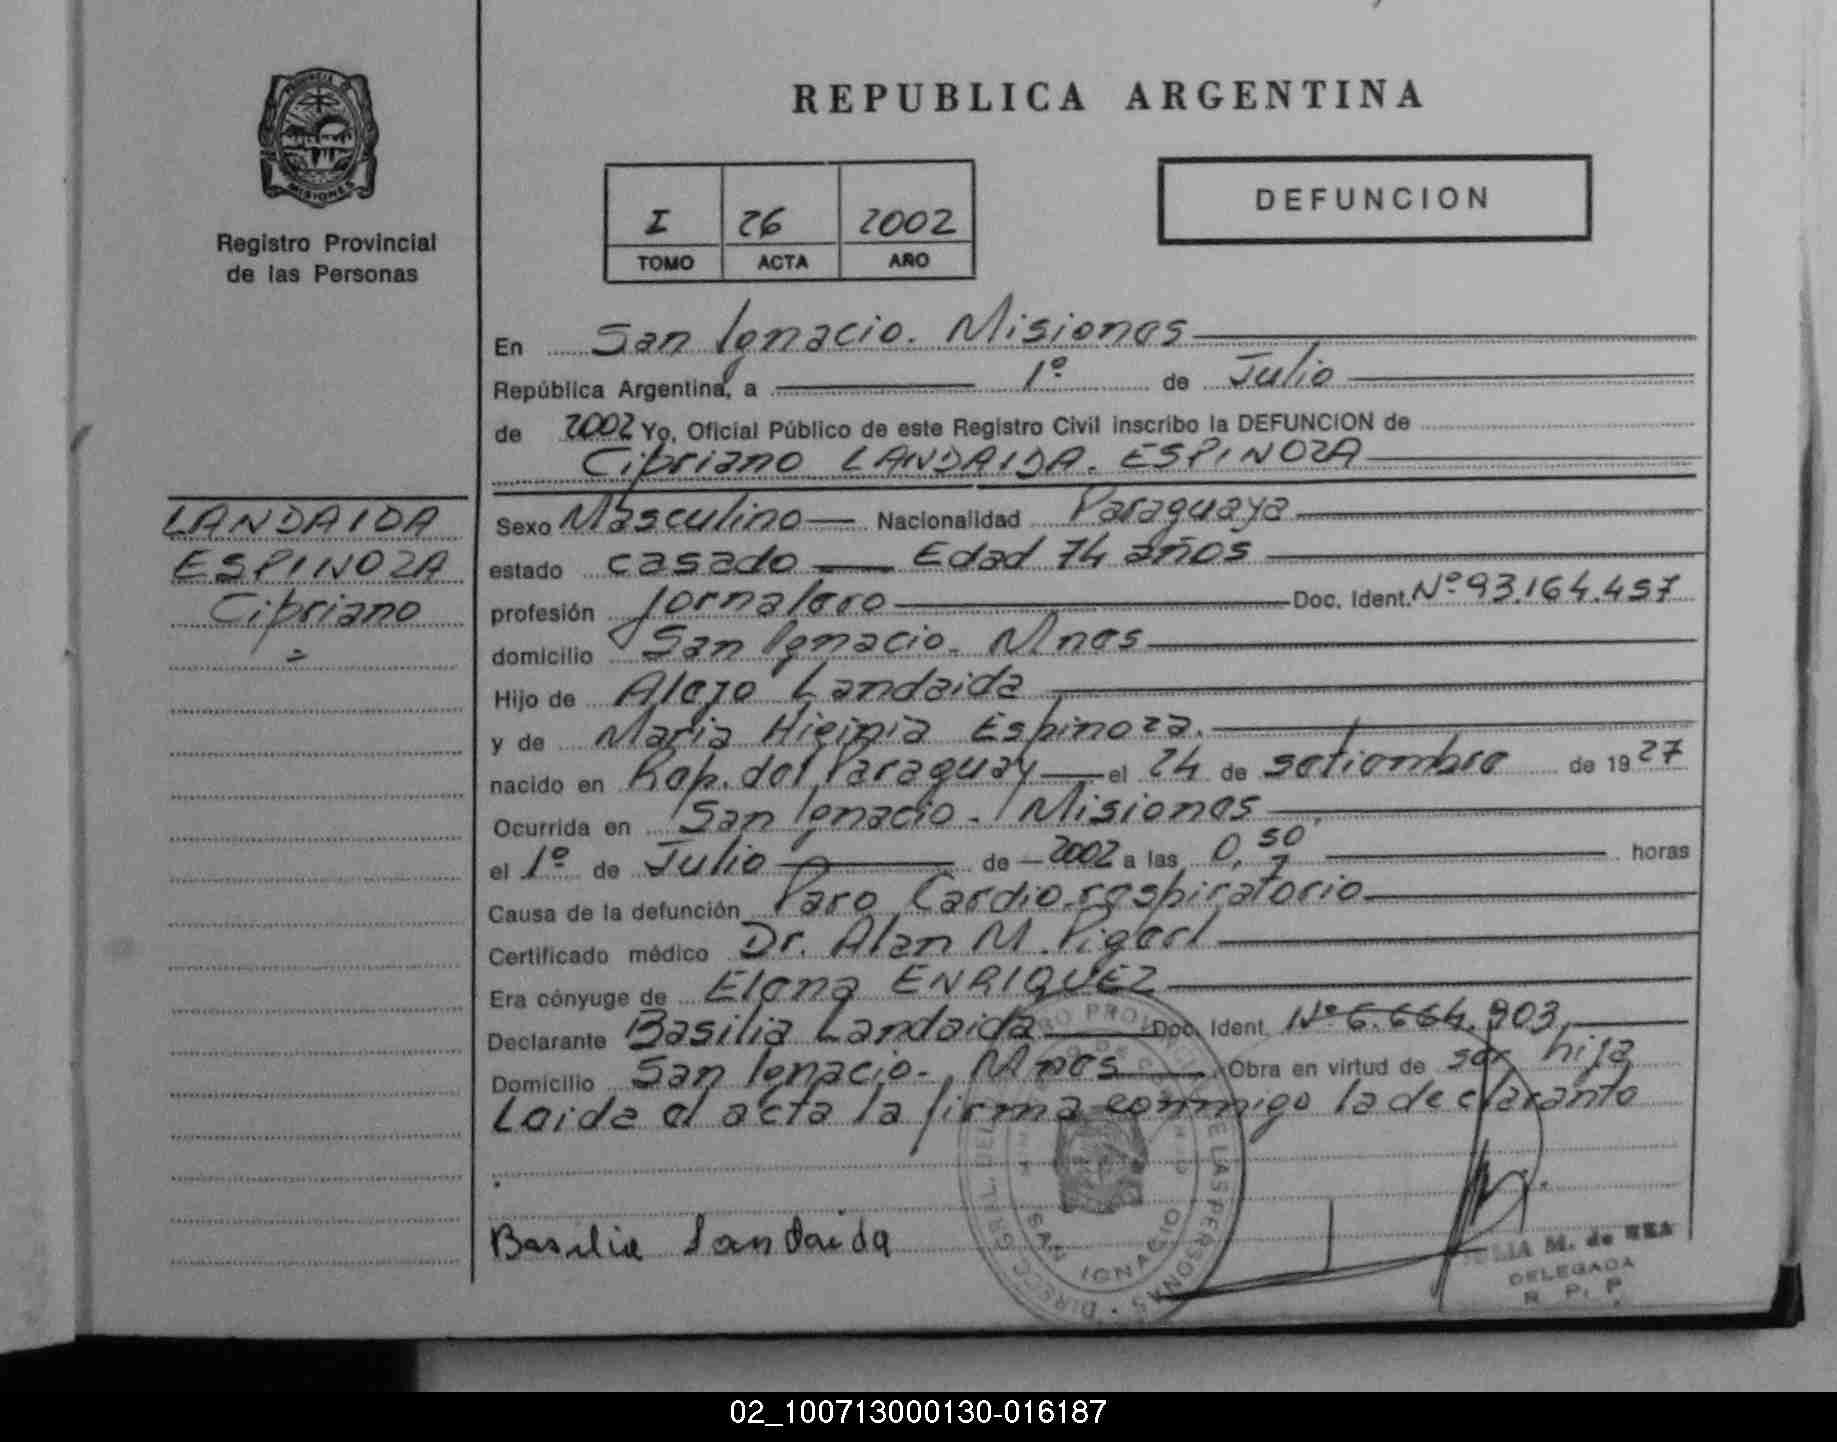 REPUBLICA ARGENTINA
PROVINCIA DE
MISIONES
Registro Provincial
de las Personas
I 26 2002
TOMO ACTA AÑO
DEFUNCION
En San Ignacio. Misiones
República Argentina, a 1º de Julio
de 2002 Yo, Oficial Público de este Registro Civil inscribo la DEFUNCION de
Cipriano LANDAIDA. ESPINOZA
LANDAIDA
ESPINOZA
Cipriano
=
Sexo Masculino Nacionalidad Paraguaya
estado casado Edad 74 años
profesión Jornalero Doc. Ident. Nº 93.164.457
domicilio San Ignacio. Mnes
Hijo de Alejo Landaida
y de Maria Higinia Espinoza.
nacido en Rep. del Paraguay el 24 de setiembre de 1927
Ocurrida en San Ignacio - Misiones
el 1º de Julio de 2002 a las 0,50 horas
Causa de la defunción Paro Cardio-respiratorio
Certificado médico Dr. Alan M.
Era cónyuge de Elena ENRIQUEZ
Declarante Basilia Landaida Doc. Ident. Nº 6.664.903,
Domicilio San Ignacio-, Mnes Obra en virtud de ser hija
Leida el acta la firma conmigo la declarante
Basilia Landaida
SAN IGNACIO
M. de REA
DELEGADA
R. P. P.
02_100713000130-016187